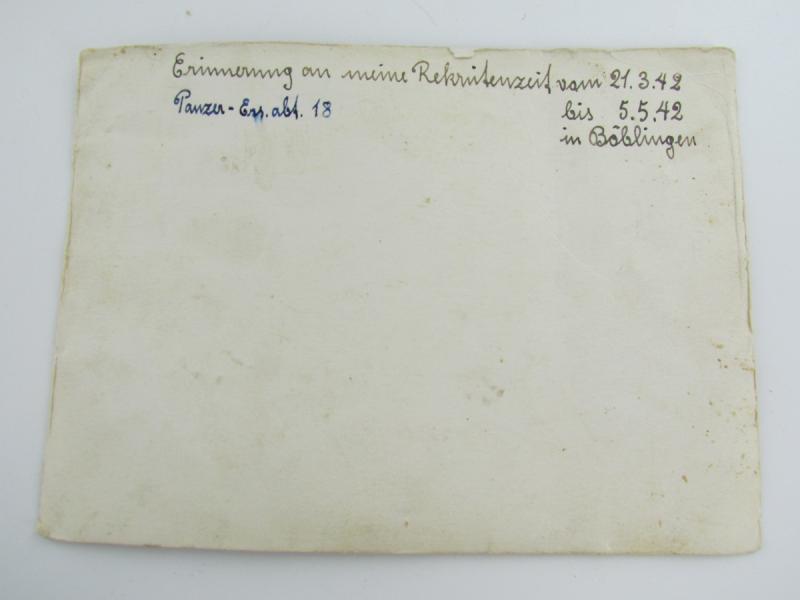 Erinnerung an meine Rekrutenzeit vom 21.3.42
Panzer-Ers.abt. 18 bis 5.5.42
in Böblingen